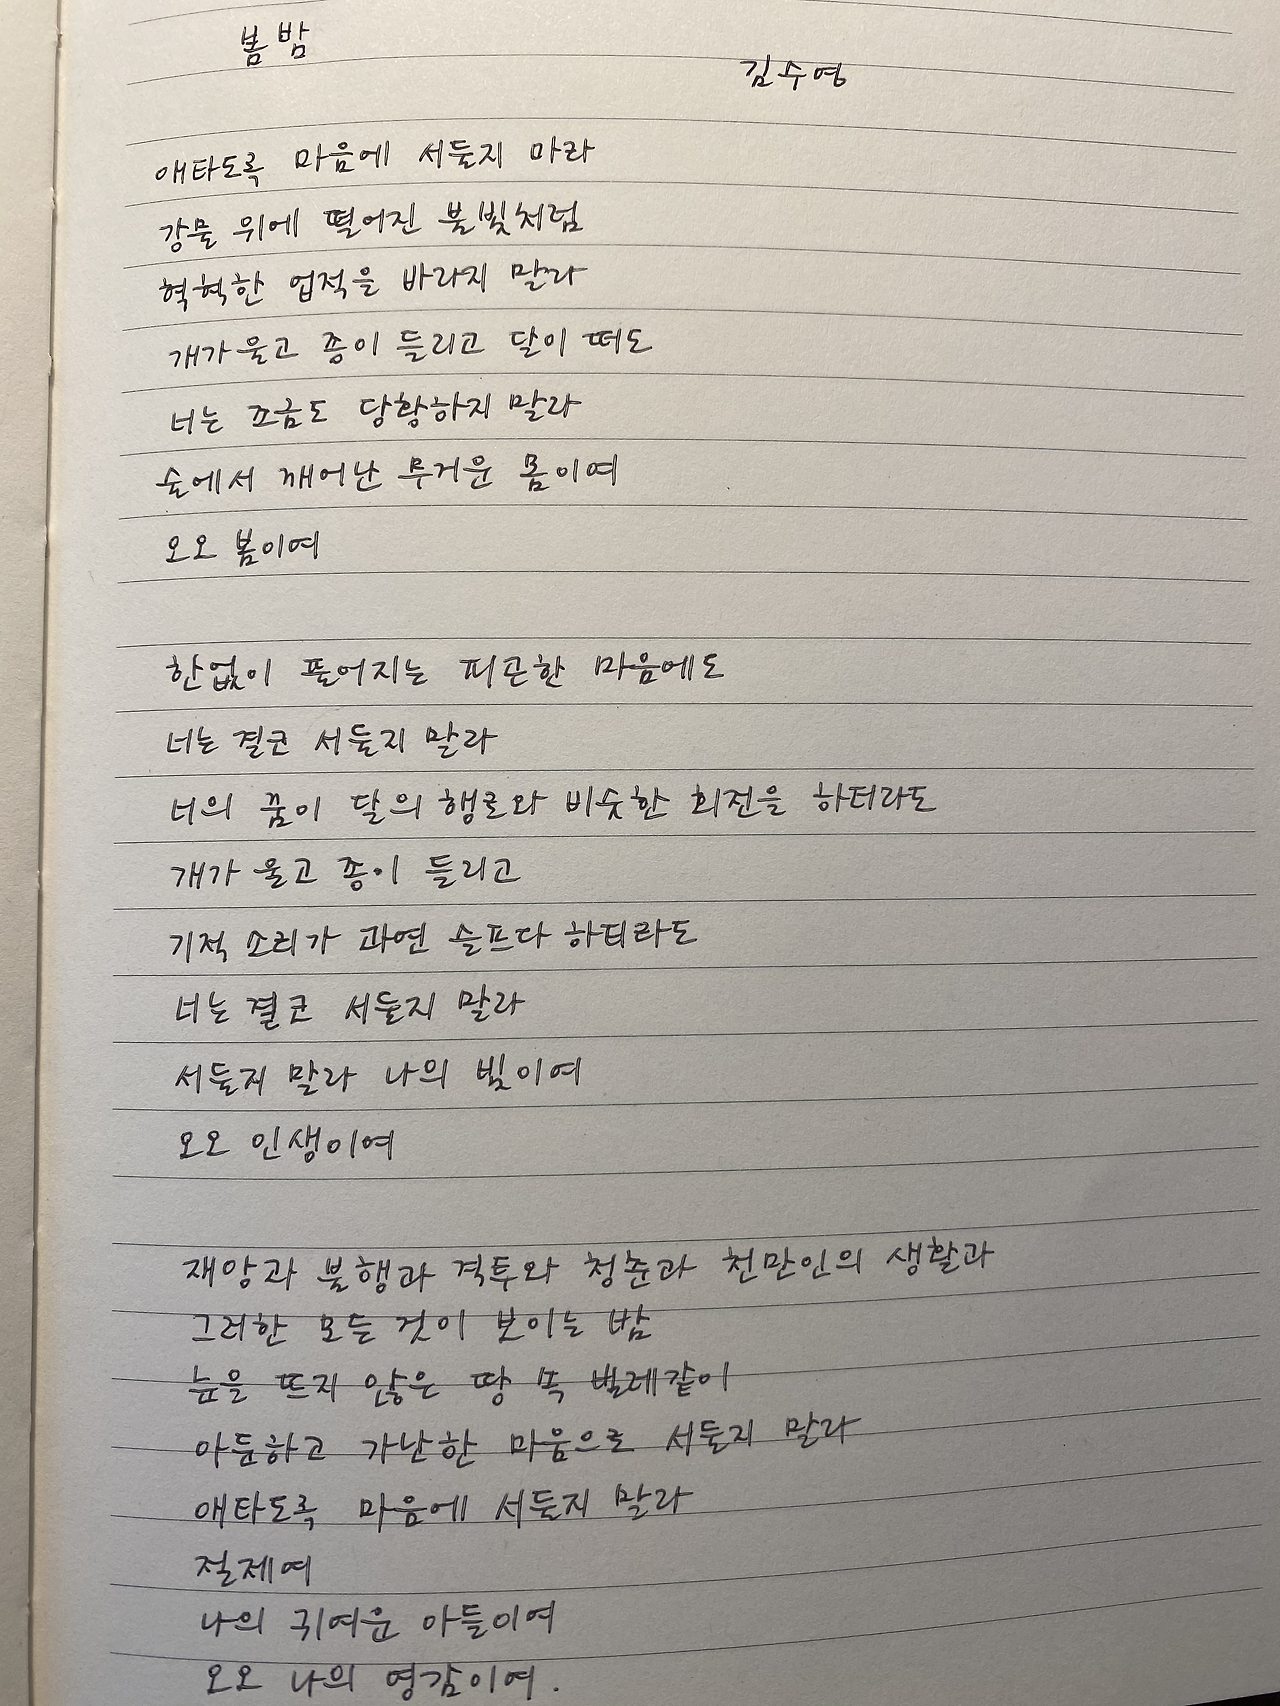 봄밤
김수영
애타도록 마음에 서둘지 마라
강물 위에 떨어진 불빛처럼
혁혁한 업적을 바라지 말라
개가 울고 종이 들리고 달이 떠도
너는 조금도 당황하지 말라
술에서 깨어난 무거운 몸이여
오오 봄이여
한없이 풀어지는 피곤한 마음에도
너는 결코 서둘지 말라
너의 꿈이 달의 행로와 비슷한 회전을 하더라도
개가 울고 종이 들리고
기적 소리가 과연 슬프다 하더라도
너는 결코 서둘지 말라
서둘지 말라 나의 빛이여
오오 인생이여
재앙과 불행과 격투와 청춘과 천만인의 생활과
그러한 모든 것이 보이는 밤
눈을 뜨지 않은 땅 속 벌레같이
아둔하고 가난한 마음으로 서둘지 말라
애타도록 마음에 서둘지 말라
절제여
나의 귀여운 아들이여
오오 나의 영감이여.